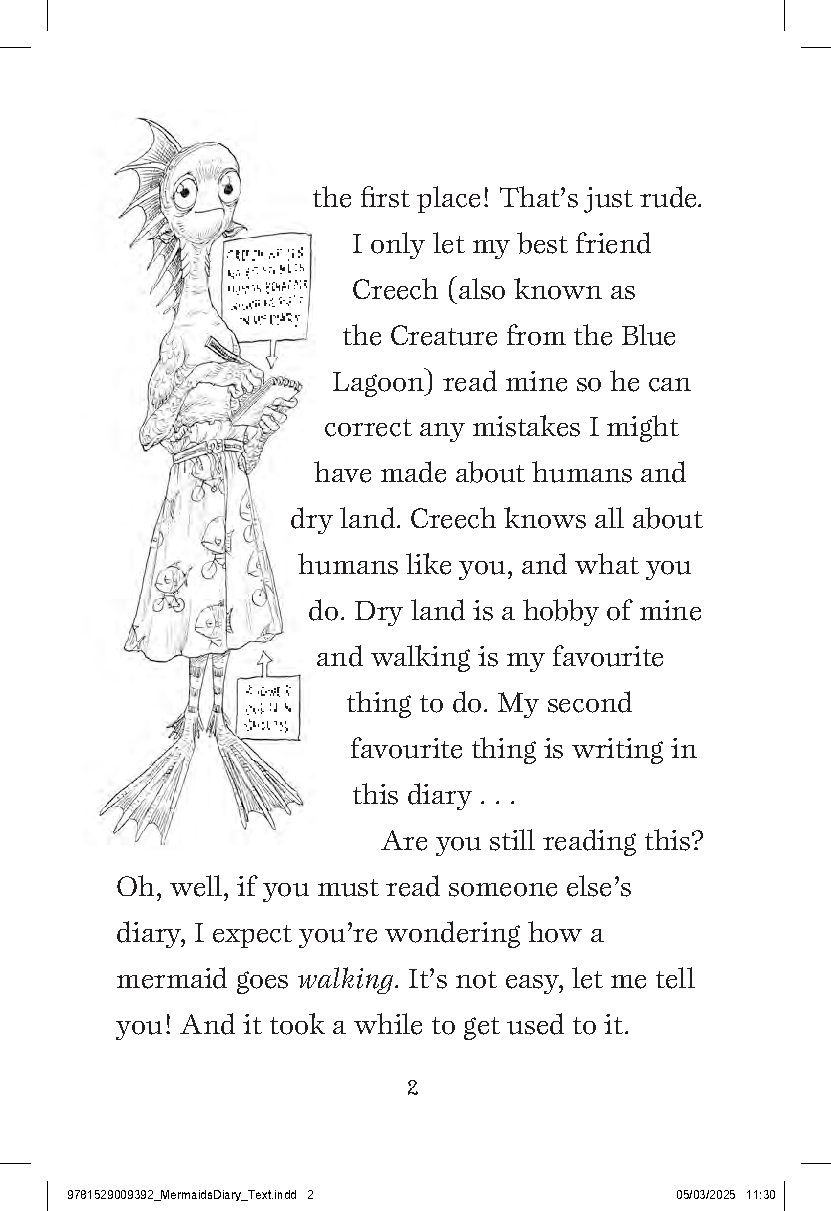 the first place! That’s just rude.
I only let my best friend
Creech (also known as
the Creature from the Blue
Lagoon) read mine so he can
correct any mistakes I might
have made about humans and
dry land. Creech knows all about
humans like you, and what you
do. Dry land is a hobby of mine
and walking is my favourite
thing to do. My second
favourite thing is writing in
this diary . . .
Are you still reading this?
Oh, well, if you must read someone else’s
diary, I expect you’re wondering how a
mermaid goes walking. It’s not easy, let me tell
you! And it took a while to get used to it.
2
9781529009392_MermaidsDiary_Text.indd 2
05/03/2025 11:30